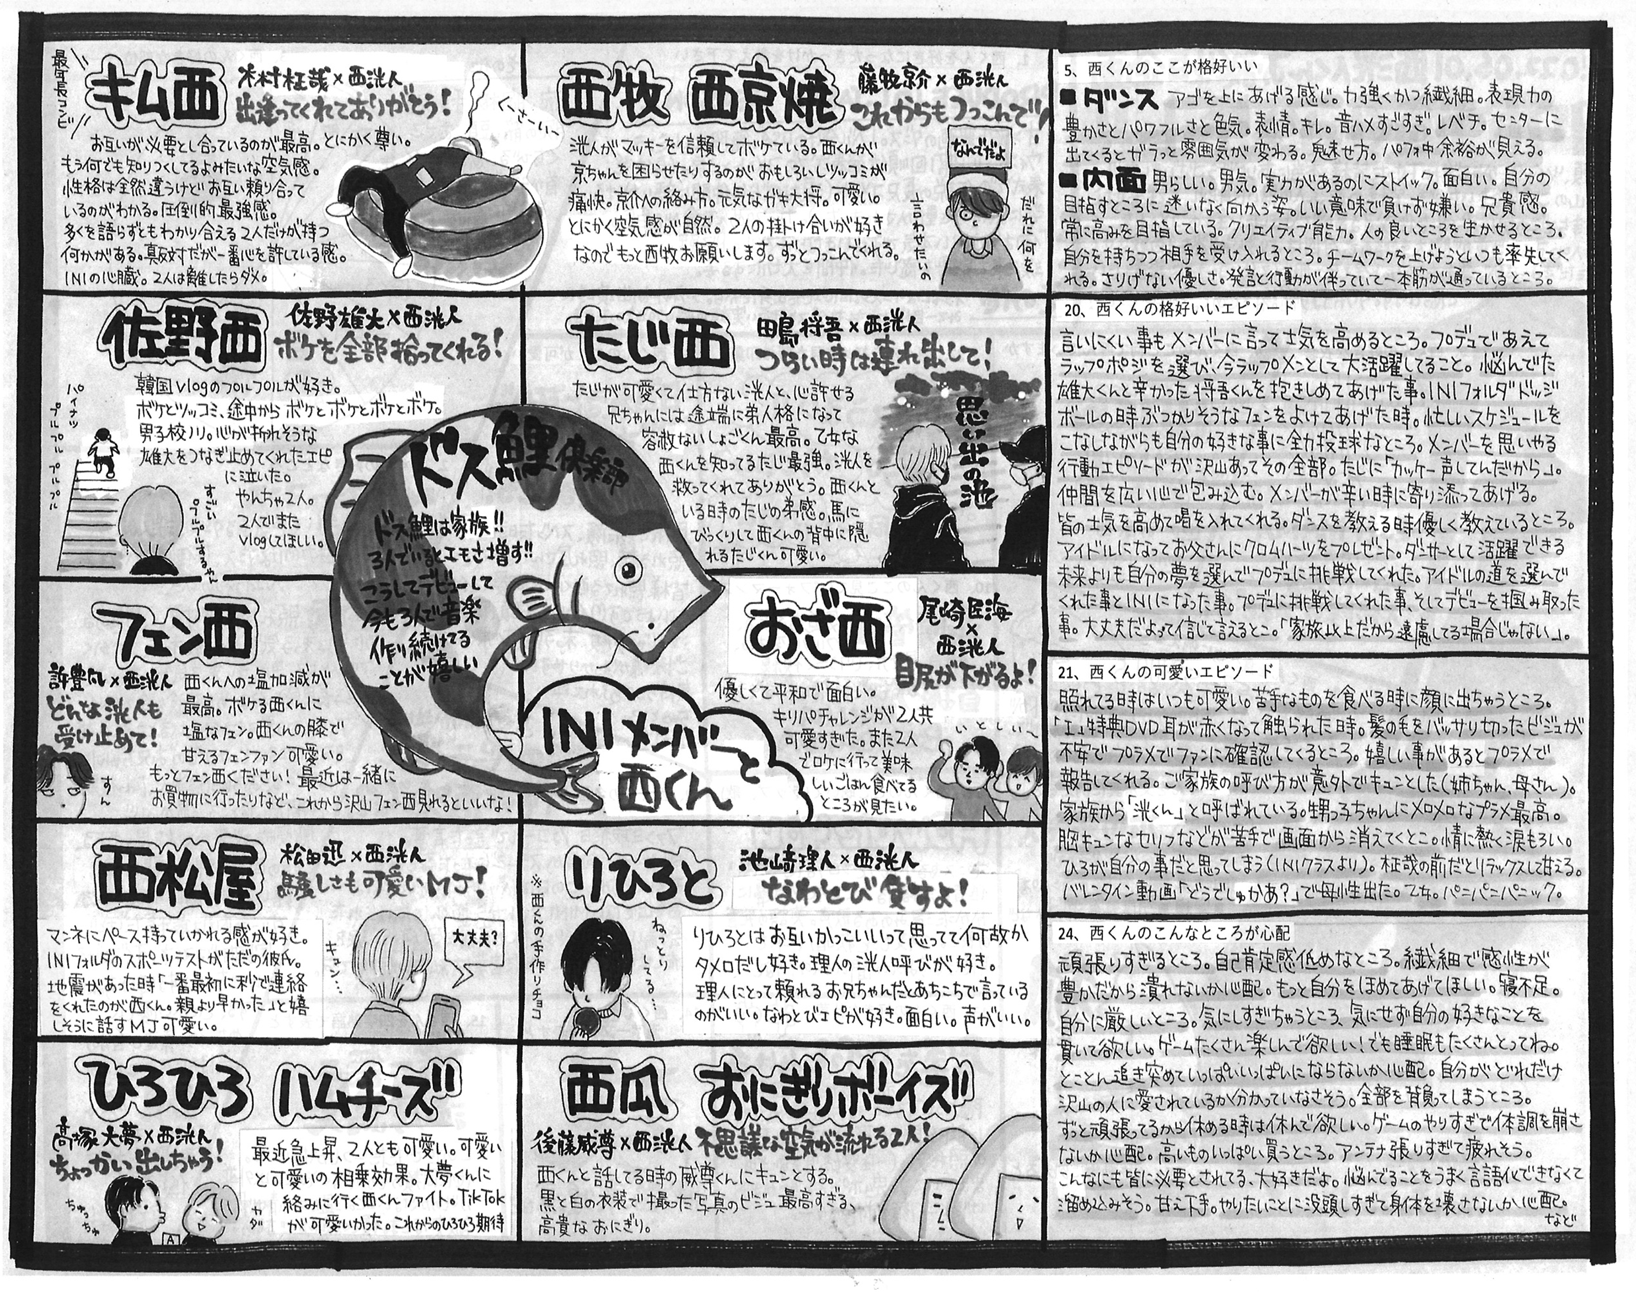 最年長コンビ
キム西
木村柾哉×西洸人
出逢ってくれてありがとう!
お互いが必要とし合っているのが最高。とにかく尊い。
もう何でも知りつくしてるよみたいな空気感。
性格は全然違うけどお互い頼り合って
いるのがわかる。圧倒的最強感。
多くを語らずともわかり合える2人だけが持つ
何かがある。真反対だが一番心を許している感。
INIの心臓。2人は離したらダメ。
くーさーいー
西牧 西京焼
藤牧京介×西洸人
これからもつっこんで!
洸人がマッキーを信頼してボケている。西くんが
京ちゃんを困らせたりするのがおもしろいしツッコミが
痛快。京介への絡み方。元気なガキ大将。可愛い。
とにかく空気感が自然。2人の掛け合いが好き
なのでもっと西牧お願いします。ずっとつっこんでくれる。
なんでだよ
だれに何を
言わせたいの
佐野西
佐野雄大×西洸人
ボケを全部拾ってくれる!
韓国vlogのプルプルが好き。
ボケとツッコミ、途中からボケとボケとボケとボケ。
男子校ノリ。心が折れそうな
雄大をつなぎ止めてくれたエピ
に泣いた。
やんちゃ2人。
2人でまた
vlogしてほしい。
パイナツ
プルプル プルプル
すごい
プルプルするやん
たじ西
田島将吾×西洸人
つらい時は連れ出して!
たじが可愛くて仕方ない洸人と、心許せる
兄ちゃんには途端に弟人格になって
容赦ないしょごくん最高。乙女な
西くんを知ってるたじ最強。洸人を
救ってくれてありがとう。西くんと
いる時のたじの弟感。馬に
びっくりして西くんの背中に隠
れるたじくん可愛い。
思い出の池
ドス鯉倶楽部
ドス鯉は家族!!
3人でいるとエモさ増す!!
こうしてデビューして
今も3人で音楽
作り続けてる
ことが嬉しい
INIメンバーと
西くん
フェン西
許豊凡×西洸人
どんな洸人も
受け止めて!
西くんへの塩加減が
最高。ボケる西くんに
塩なフェン。西くんの膝で
甘えるフェンファン可愛い。
もっとフェン西ください!最近は一緒に
お買物に行ったりなど、これから沢山フェン西見れるといいな!
すん
おざ西
尾崎匠海
×
西洸人
目尻が下がるよ!
優しくて平和で面白い。
キリパチャレンジが2人共
可愛すぎた。また2人
でロケに行って美味
しいごはん食べてる
ところが見たい。
いとしい〜
西松屋
松田迅×西洸人
騒しさも可愛いMJ!
マンネにペース持っていかれる感が好き。
INIフォルダのスポーツテストがただの彼氏。
地震があった時「一番最初に秒で連絡
をくれたのが西くん。親より早かった」と嬉
しそうに話すMJ可愛い。
キュン…
大丈夫?
りひろと
池﨑理人×西洸人
なわとび貸すよ!
※西くんの手作りチョコ
ねっとり
してる…
りひろとはお互いかっこいいって思ってて何故か
タメ口だし好き。理人の洸人呼びが好き。
理人にとって頼れるお兄ちゃんだとあちこちで言っている
のがいい。なわとびエピが好き。面白い。声がいい。
ひろひろ ハムチーズ
髙塚大夢×西洸人
ちょっかい出しちゃう!
最近急上昇、2人とも可愛い。可愛い
と可愛いの相乗効果。大夢くんに
絡みに行く西くんファイト。TikTok
が可愛いかった。これからのひろひろ期待
ちゅっちゅ
A
西瓜 おにぎりボーイズ
後藤威尊×西洸人
不思議な空気が流れる2人!
西くんと話してる時の威尊くんにキュンとする。
黒と白の衣装で撮った写真のビジュ最高すぎる、
高貴なおにぎり。
5、西くんのここが格好いい
■ダンス アゴを上にあげる感じ。力強くかつ繊細。表現力の
豊かさとパワフルさと色気。表情。キレ。音ハメすごすぎ。レベチ。センターに
出てくるとガラっと雰囲気が変わる。魅せ方。パフォ中余裕が見える。
■内面 男らしい。男気。実力があるのにストイック。面白い。自分の
目指すところに迷いなく向かう姿。いい意味で負けず嫌い。兄貴感。
常に高みを目指している。クリエイティブ能力。人の良いところを生かせるところ。
自分を持ちつつ相手を受け入れるところ。チームワークを上げようといつも率先してく
れる。さりげない優しさ。発言と行動が伴っていて一本筋が通っているところ。
20、西くんの格好いいエピソード
言いにくい事もメンバーに言って士気を高めるところ。プデュであえて
ラップポジを選び、今ラップメンとして大活躍してること。悩んでた
雄大くんと辛かった将吾くんを抱きしめてあげた事。INIフォルダドッジ
ボールの時ぶつかりそうなフェンをよけてあげた時。忙しいスケジュールを
こなしながらも自分の好きな事に全力投球なところ。メンバーを思いやる
行動エピソードが沢山あってその全部。たじに「カッケー声してんだから」。
仲間を広い心で包み込む。メンバーが辛い時に寄り添ってあげる。
皆の士気を高めて喝を入れてくれる。ダンスを教える時優しく教えているところ。
アイドルになってお父さんにクロムハーツをプレゼント。ダンサーとして活躍できる
未来よりも自分の夢を選んでプデュに挑戦してくれた。アイドルの道を選んで
くれた事とINIになった事。プデュに挑戦してくれた事、そしてデビューを掴み取った
事。大丈夫だよって信じて言えるとこ。「家族以上だから遠慮してる場合じゃない」。
21、西くんの可愛いエピソード
照れてる時はいつも可愛い。苦手なものを食べる時に顔に出ちゃうところ。
特典DVD耳が赤くなって触られた時。髪の毛をバッサリ切ったビジュが
不安でプラメでファンに確認してくるところ。嬉しい事があるとプラメで
報告してくれる。ご家族の呼び方が意外でキュンとした(姉ちゃん、母さん)。
家族から「洸くん」と呼ばれている。甥っ子ちゃんにメロメロなプラメ最高。
胸キュンなセリフなどが苦手で画面から消えてくとこ。情に熱く涙もろい。
ひろが自分の事だと思ってしまう(INIクラスより)。柾哉の前だとリラックスして甘える。
バレンタイン動画「どうでしゅかあ?」で母性出た。乙女。パニパニパニック。
24、西くんのこんなところが心配
頑張りすぎるところ。自己肯定感低めなところ。繊細で感性が
豊かだから潰れないか心配。もっと自分をほめてあげてほしい。寝不足。
自分に厳しいところ。気にしすぎちゃうところ、気にせず自分の好きなことを
貫いて欲しい。ゲームたくさん楽しんで欲しい!でも睡眠もたくさんとってね。
とことん追き突めていっぱいいっぱいにならないか心配。自分がどれだけ
沢山の人に愛されているか分かっていなさそう。全部を背負ってしまうところ。
ずっと頑張ってるから休める時は休んで欲しい。ゲームのやりすぎで体調を崩さ
ないか心配。高いものいっぱい買うところ。アンテナ張りすぎて疲れそう。
こんなにも皆に必要とされてる、大好きだよ。悩んでることをうまく言語化できなくて
溜め込みそう。甘え下手。やりたいことに没頭しすぎて身体を壊さないか心配。
など